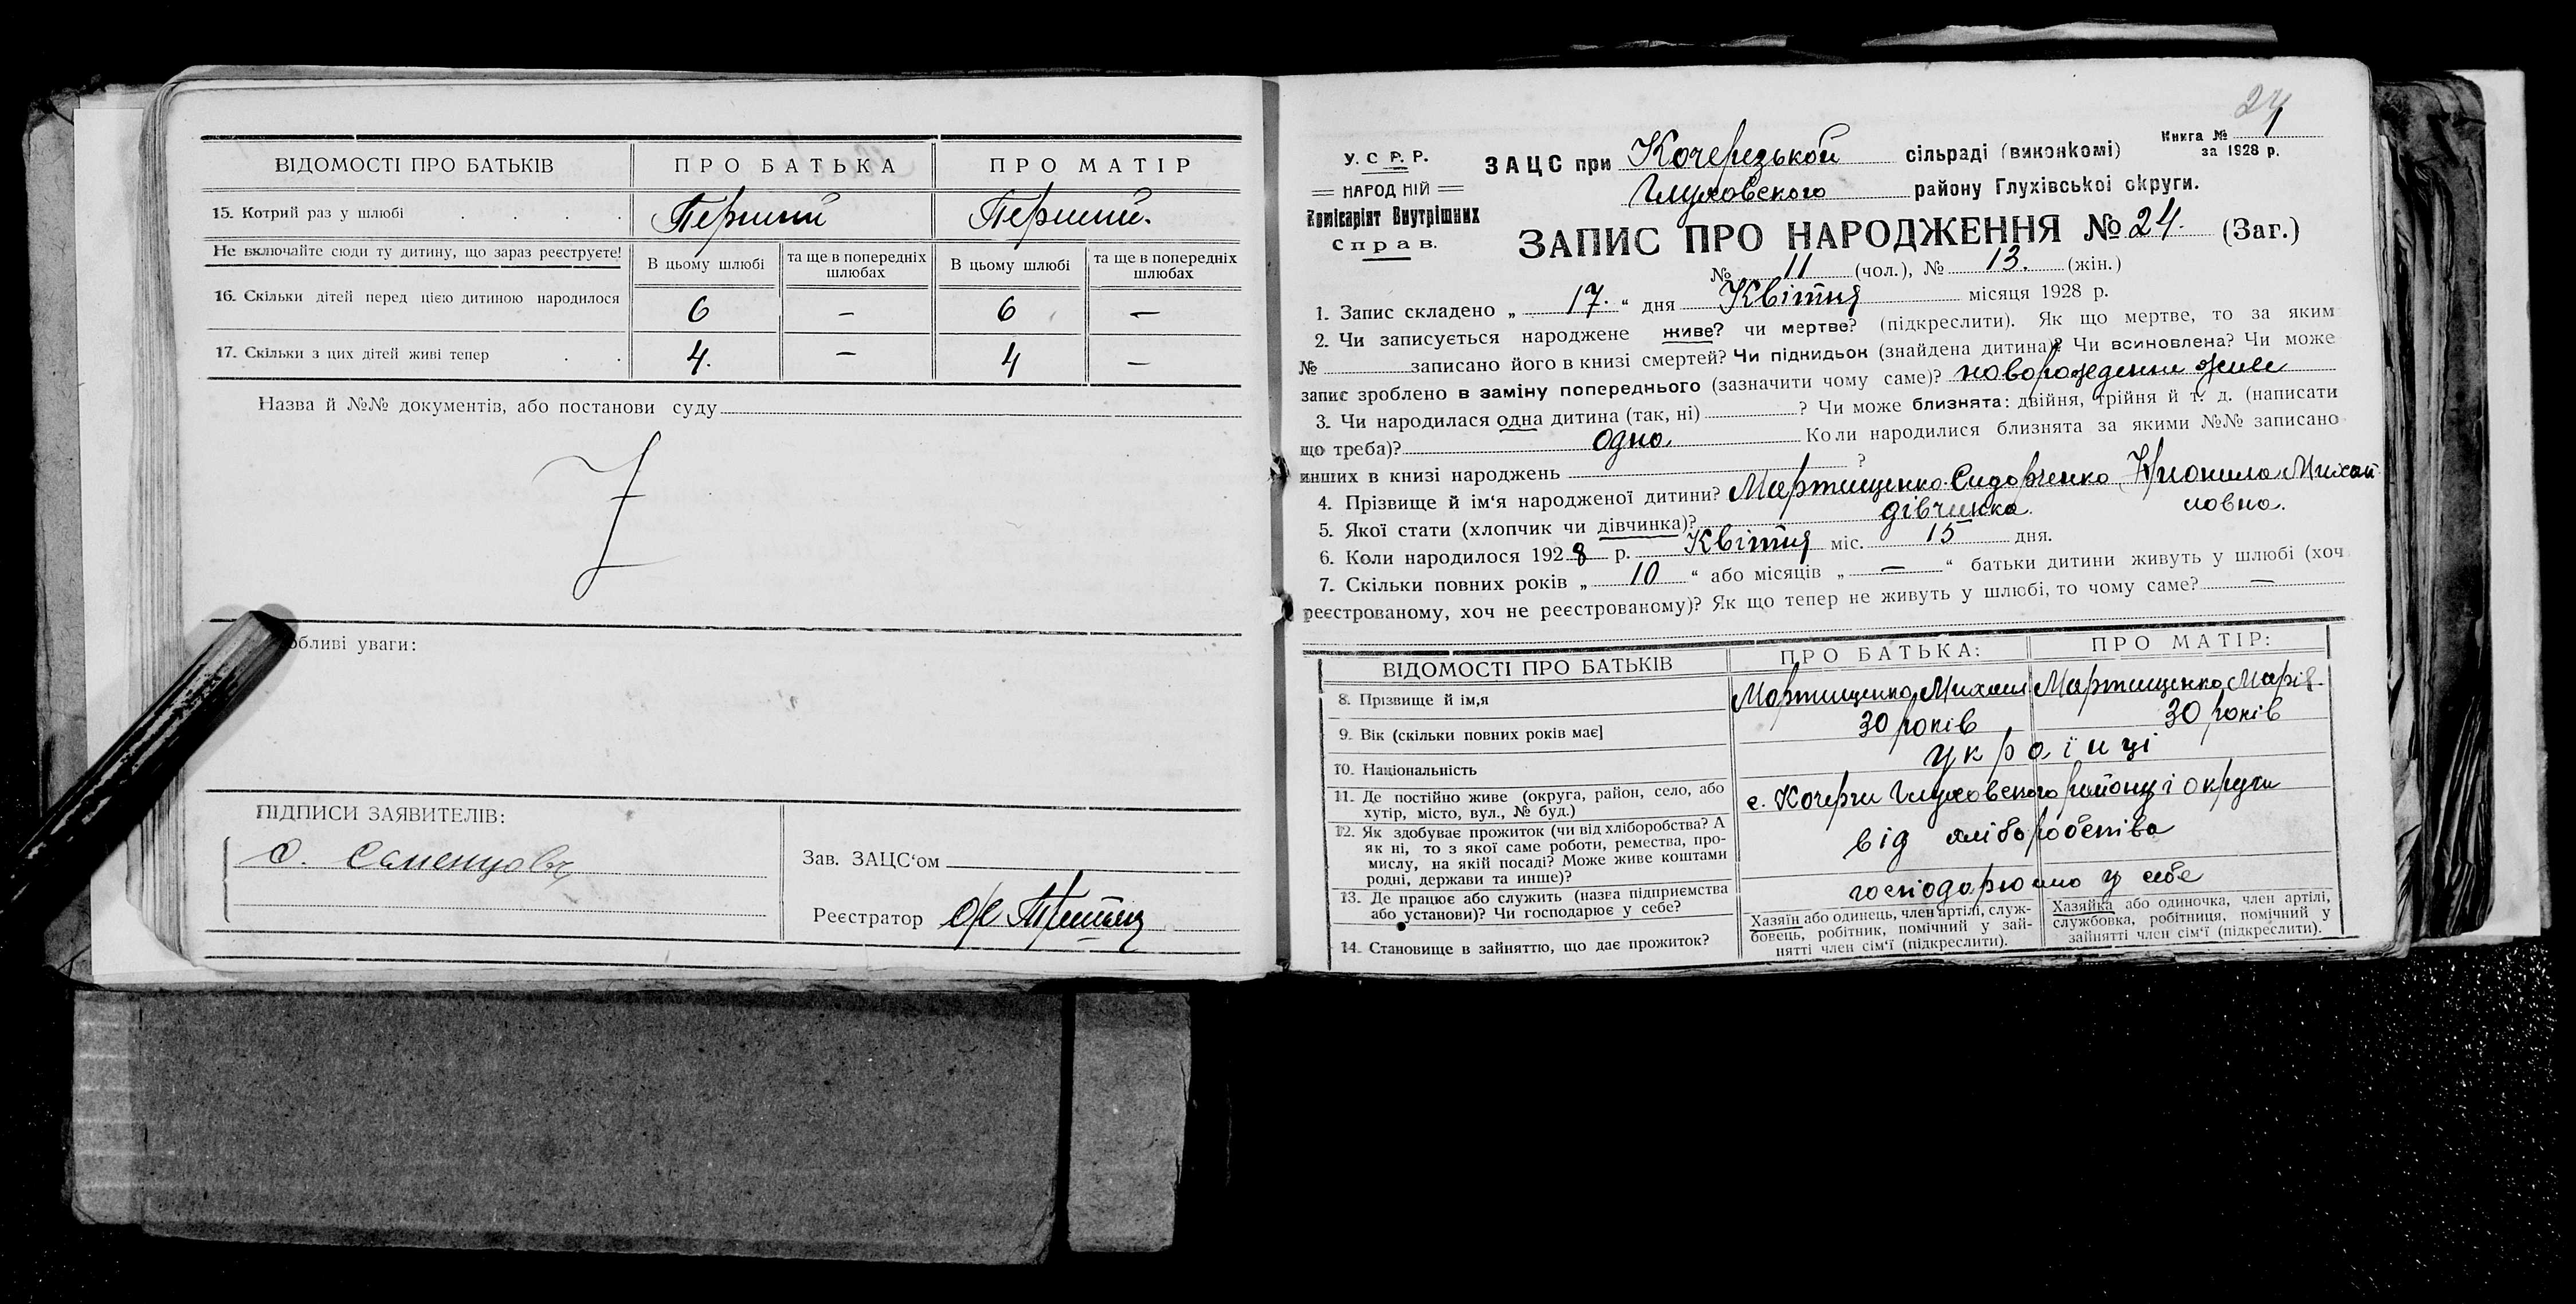 ВІДОМОСТІ ПРО БАТЬКІВ ПРО БАТЬКА ПРО МАТІР
15. Котрий раз у шлюбі . . . . Перший Перший.
Не включайте сюди ту дитину, що зараз реєструєте! В цьому шлюбі та ще в попередніх шлюбах В цьому шлюбі та ще в попередніх шлюбах
16. Скільки дітей перед цією дитиною народилося 6 — 6 —
17. Скільки з цих дітей живі тепер . . 4. — 4 —
Назва й №№ документів, або постанови суду
обливі уваги:
ПІДПИСИ ЗАЯВИТЕЛІВ:
Зав. ЗАЦС'ом
Реєстратор
24
Книга № 1
за 1928 р.
У. С. Р. Р.
НАРОДНІЙ
Комісаріят Внутрішних
Справ.
ЗАЦС при Кочерезькой сільраді (виконкомі)
Глуховского району Глухівської округи.
ЗАПИС ПРО НАРОДЖЕННЯ № 24. (Заг.)
№ 11 (чол.), № 13. (жін.)
1. Запис складено „ 17. “ дня Квітня місяця 1928 р.
2. Чи записується народжене живе? чи мертве? (підкреслити). Як що мертве, то за яким
№ записано його в книзі смертей? Чи підкидьок (знайдена дитина)? Чи всиновлена? Чи може
запис зроблено в заміну попереднього (зазначити чому саме)? новорожденни живе
3. Чи народилася одна дитина (так, ні) ? Чи може близнята: двійня, трійня й т. д. (написати
що треба)? одна. Коли народилися близнята за якими №№ записано
инших в книзі народжень ?
4. Прізвище й ім'я народженої дитини? Мартищенко-Сидорченко Михай
ловна.
5. Якої стати (хлопчик чи дівчинка)? дівчинка.
6. Коли народилося 1928 р. Квітня міс. 15 дня.
7. Скільки повних років „ 10 “ або місяців „ — “ батьки дитини живуть у шлюбі (хоч
реєстрованому, хоч не реєстрованому)? Як що тепер не живуть у шлюбі, то чому саме? —
ВІДОМОСТІ ПРО БАТЬКІВ ПРО БАТЬКА: ПРО МАТІР:
8. Прізвище й ім,я Мартищенко Михаил Мартищенко Марія.
9. Вік (скільки повних років має] 30 років 30 років
10. Національність українці
11. Де постійно живе (округа, район, село, або
хутір, місто, вул., № буд.) с. Кочерги Глуховского району і округи
12. Як здобуває прожиток (чи від хліборобства? А
як ні, то з якої саме роботи, ремества, про-
мислу, на якій посаді? Може живе коштами
родні, держави та инше)? від хліборобства
13. Де працює або служить (назва підприємства
або установи)? Чи господарює у себе? господарюємо у себе
14. Становище в зайняттю, що дає прожиток?
Хазяїн або одинець, член артілі, служ-
бовець, робітник, помічний у зай-
нятті член сім'ї (підкреслити).
Хазяйка або одиночка, член артілі,
службовка, робітниця, помічний у
зайнятті член сім'ї (підкреслити).